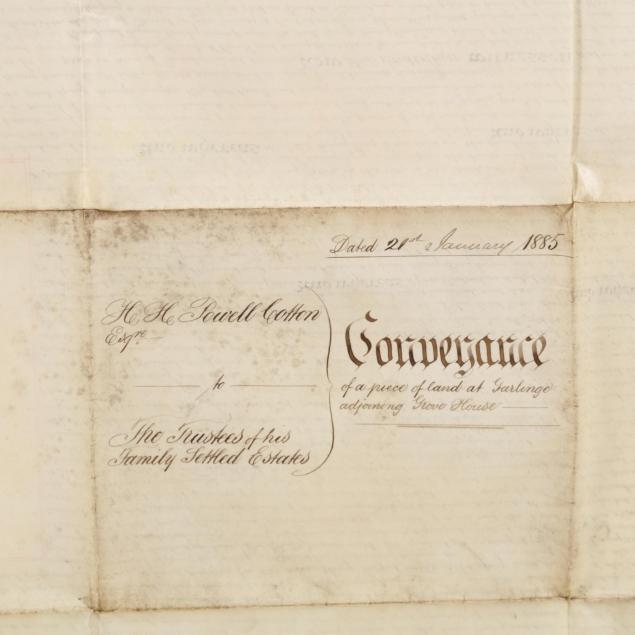 Dated 21st January 1885
H. H. Powell Cotton
Esqre
to
The Trustees of his
Family Settled Estates
Conveyance
of a piece of land at Garlinge
adjoining Grove House